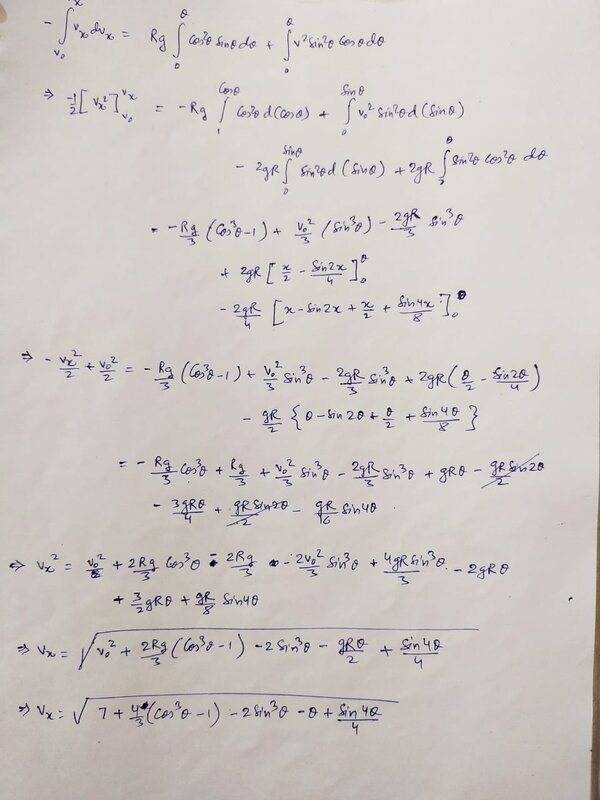 - ∫_{v₀}^{v_x} v_x dv_x = Rg ∫_0^θ cos²θ sinθ dθ + ∫_0^θ v² sin²θ cosθ dθ
⇒ -1/2 [v_x²]_{v₀}^{v_x} = -Rg ∫_1^{cosθ} cos²θ d(cosθ) + ∫_0^{sinθ} v₀² sin²θ d(sinθ)
- 2gR ∫_0^{sinθ} sin²θ d(sinθ) + 2gR ∫_0^θ sin²θ cos²θ dθ
= -Rg/3 (cos³θ-1) + v₀²/3 (sin³θ) - 2gR/3 sin³θ
+ 2gR [x/2 - sin2x/4]_0^θ
- 2gR/4 [x - sin2x + x/2 + sin4x/8]_0^θ
⇒ - v_x²/2 + v₀²/2 = -Rg/3 (cos³θ-1) + v₀²/3 sin³θ - 2gR/3 sin³θ + 2gR(θ/2 - sin2θ/4)
- gR/2 {θ - sin2θ + θ/2 + sin4θ/8}
= - Rg/3 cos³θ + Rg/3 + v₀²/3 sin³θ - 2gR/3 sin³θ + gRθ - gR sin2θ/2
- 3gRθ/4 + gR sin2θ/2 - gR/16 sin4θ
⇒ v_x² = v₀² + 2Rg/3 cos³θ - 2Rg/3 - 2v₀²/3 sin³θ + 4gR sin³θ/3 - 2gRθ
+ 3/2 gRθ + gR/8 sin4θ
⇒ v_x = √(v₀² + 2Rg/3 (cos³θ-1) - 2sin³θ - gRθ/2 + sin4θ/4)
⇒ v_x = √(7 + 4/3 (cos³θ-1) - 2sin³θ - θ + sin4θ/4)